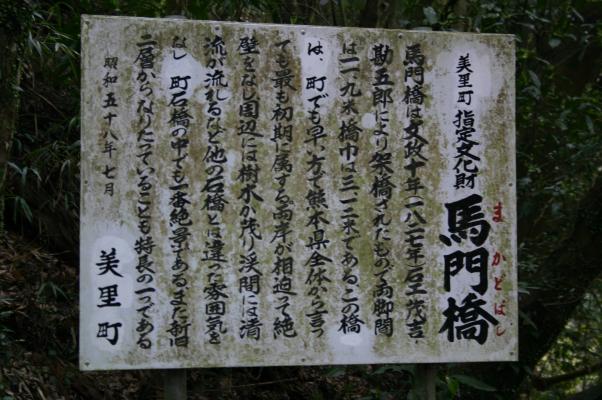 美里町 指定文化財
馬門橋
まかどばし
馬門橋は文政十年(一八二七年)石工茂吉
勘五郎により架橋されたもので両脚間
は二、九米橋巾は三、一二米である。この橋
は、町でも早い方で熊本県全体から言っ
ても最も初期に属する。両岸が相迫って絶
壁をなし周辺には樹木が茂り渓間には清
流が流れるなど他の石橋とは違った雰囲気を
なし 町石橋の中でも一番絶景である。また新旧
二層からなりたっていることも特長の一つである
昭和五十八年七月
美里町